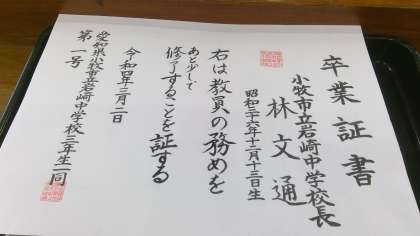 卒業証書
小牧市立岩崎中学校長
林文通
昭和三十六年十二月十三日生
右は教員の務めを
あと少しで
修了することを証する
令和四年三月二日
愛知県小牧市立岩崎中学校三年生一同
第一号